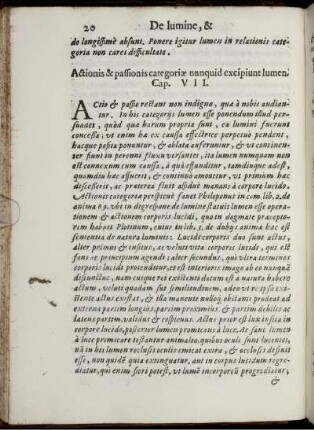 20 De lumine, &
do longissimè absunt. Ponere igitur lumen in relationis cate-
goria non caret difficultate.
Actionis & passionis categoriæ nunquid excipiunt lumen.
Cap. VII.
ACtio & passio restant non indignæ, quæ à nobis audian-
tur. In his categorijs lumen esse ponendum illud per-
suadet, quòd quæ harum propria sunt, ea lumini fuerunt
concessa: ut enim hæ ex causa effectrice perpetuò pendent,
hacque posita ponuntur, & ablata auferuntur, & ut continen-
ter fiunt in perenni fluxu versantes, ita lumen nunquam non
est connexum cum causa, à qua effunditur, tamdiuque adest,
quamdiu hæc assuerit, & continuò amouetur, ut primùm hæc
discesserit, ac præterea fluit assiduè manans à corpore lucido.
Actionis categoria perspicuè fauet Philoponus in com. lib. 2. de
anima p. vbi in digressione de lumine statuit lumen esse opera-
tionem & actionem corporis lucidi, quo in dogmate præcepto-
rem habet Plotinum, cuius in lib. 3. de dubys animæ hæc est
sententia de natura luminis. Lucidi corporis duo sunt actus,
alter primus & insitus, ac veluti vita corporis lucidi, qui est
fons ac principium agendi: alter secundus, qui vltra terminos
corporis lucidi producitur, & est interioris imago ab eo nunquam
disiunctus, nam cuique rei existenti ducem est à natura habere
actum, veluti quoddam sui similitudinem, adeo vt re ipsa exi-
stente actus existat, & illa manente nullo obstante prodeat ad
externa partim longius, partim proximius, & partim debilis ac
latens partim, validus & cospicuus. Actus prior est lux insita in
corpore lucido, posterior lumen promicans à luce. Ac sanè lumen
à luce promicare testantur animalia, quibus oculi sunt lucentes,
nã in his lumen reclusis oculis emicat extra, & occlusis desinit
esse, non quidẽ quia extinguatur, aut in corpus lucidum regre-
diatur, qui enim fieri potest, vt lumẽ incorporeũ progrediatur,
&